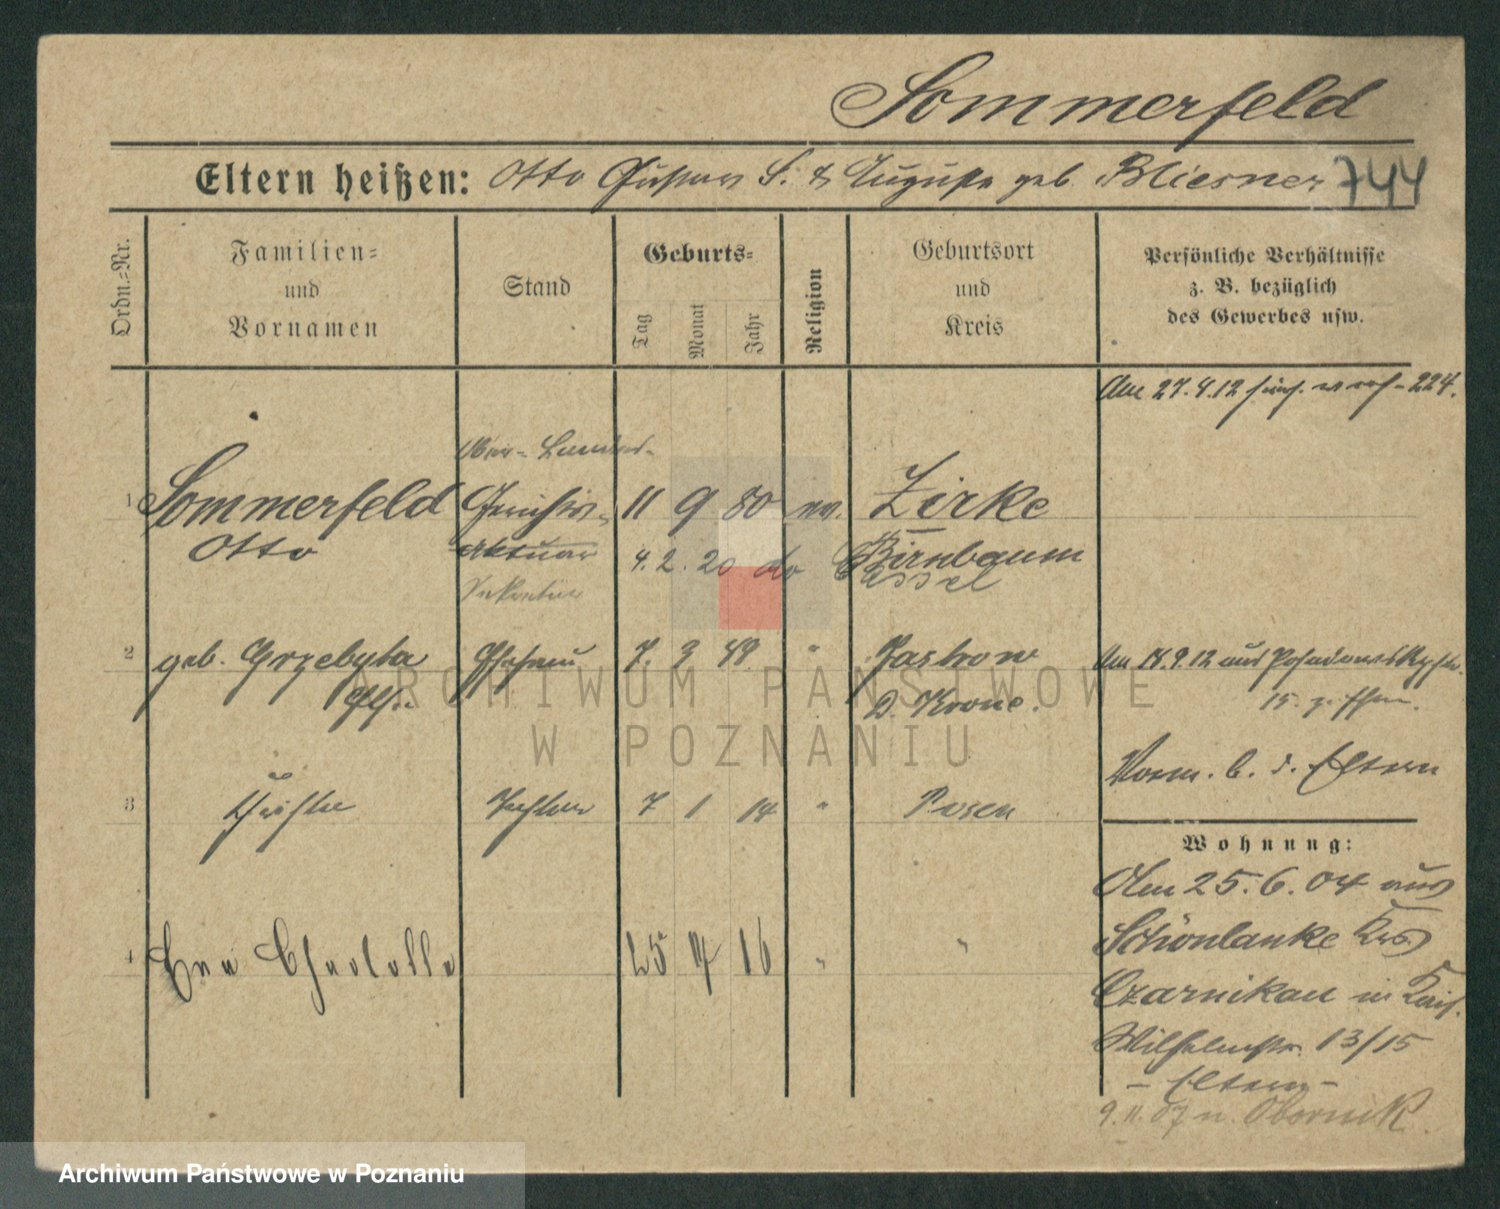 Sommerfeld
Eltern heißen: Otto Gustav S. & Auguste geb. Bliesner 744
Ordn.=Nr.
Familien=
und
Vornamen
Stand
Geburts=
Tag
Monat
Jahr
Religion
Geburtsort
und
Kreis
Persönliche Verhältnisse
z. B. bezüglich
des Gewerbes usw.
Am 27.4.12 224.
Ober-Landes-
1 Sommerfeld Gerichts- 11 9 80 ev. Zirke
Otto Aktuar 4. 2. 20 do Birnbaum
Sekretär Cassel
2 geb. Grzebyta Ehefrau 7. 3 " Jastrow Am 14.9.12 aus
D. Krone. 15.
Vorm. b. d. Eltern
3 Tochter 7 1 14 " Posen
Wohnung:
Den 25.6.04 aus
Schönlanke Krs
4 Eva Charlotte 25 4 16 " "
Czarnikau in Kais.
Wilhelmstr. 13/15
- Eltern -
9.11.07 n. Obornik.
ARCHIWUM PAŃSTWOWE
W POZNANIU
Archiwum Państwowe w Poznaniu